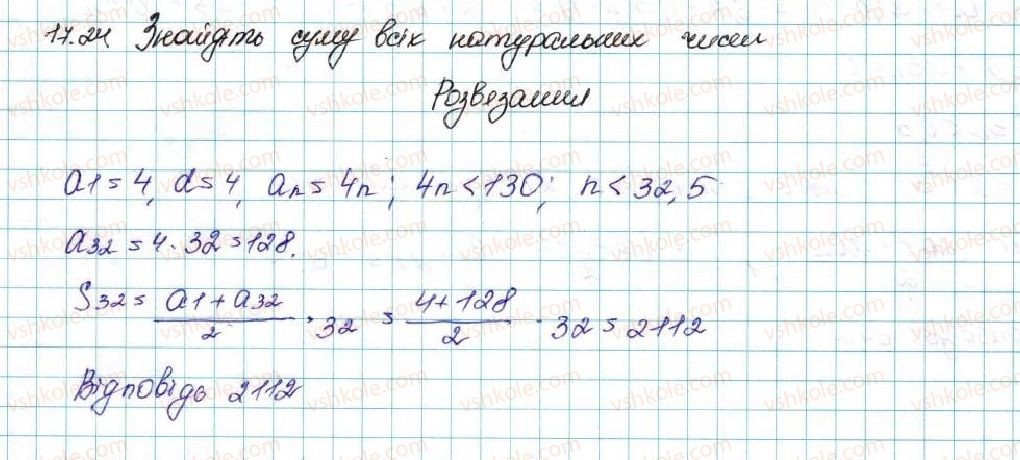 17.24. Знайдіть суму всіх натуральних чисел
Розвезання
a1 = 4, d = 4, an = 4n; 4n < 130; n < 32,5
a32 = 4 · 32 = 128.
S32 = (a1 + a32)/2 · 32 = (4 + 128)/2 · 32 = 2112
Відповідь 2112